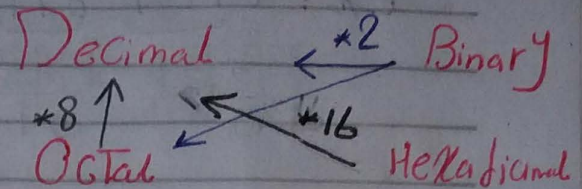 Decimal *2 Binary
*8 *16
Octal Hexadicmal